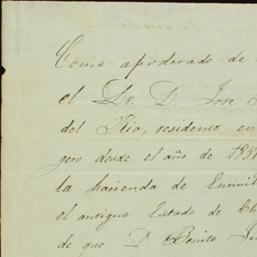 Como apoderado de
el Dr. D. Jose
del Rio, residente en
gero desde el año de 185
la hacienda de Encinil
el antiguo Estado de Ch
de que D. Benito Ju